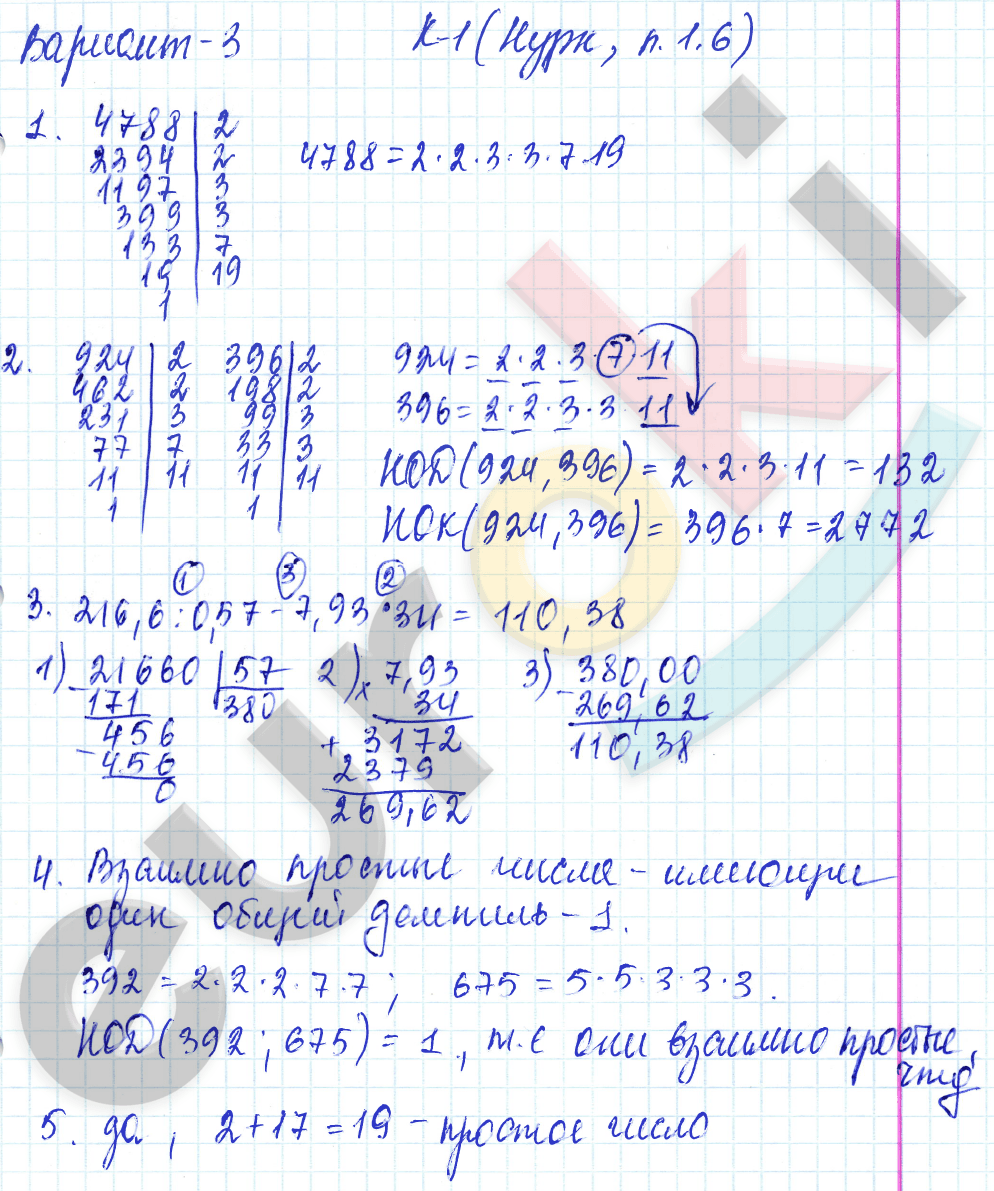 Вариант-3 К-1 (Нурк, п. 1.6)
1. 4788 | 2
2394 | 2 4788 = 2·2·3·3·7·19
1197 | 3
399 | 3
133 | 7
19 | 19
1
2. 924 | 2 396 | 2 924 = 2·2·3·7·11
462 | 2 198 | 2 396 = 2·2·3·3·11
231 | 3 99 | 3
77 | 7 33 | 3 НОД(924, 396) = 2·2·3·11 = 132
11 | 11 11 | 11
1 1 НОК(924, 396) = 396·7 = 2772
1 3 2
3. 216,6 : 0,57 - 7,93 · 34 = 110,38
1) 21660 | 57 2) × 7,93 3) 380,00
- 171 380 34 - 269,62
456 + 3172 110,38
- 456 2379
0 269,62
4. Взаимно простые числа - имеющие
один общий делитель - 1.
392 = 2·2·2·7·7; 675 = 5·5·3·3·3.
НОД(392; 675) = 1, т.е они взаимно простые,
чтд
5. да, 2+17 = 19 - простое число
euroki